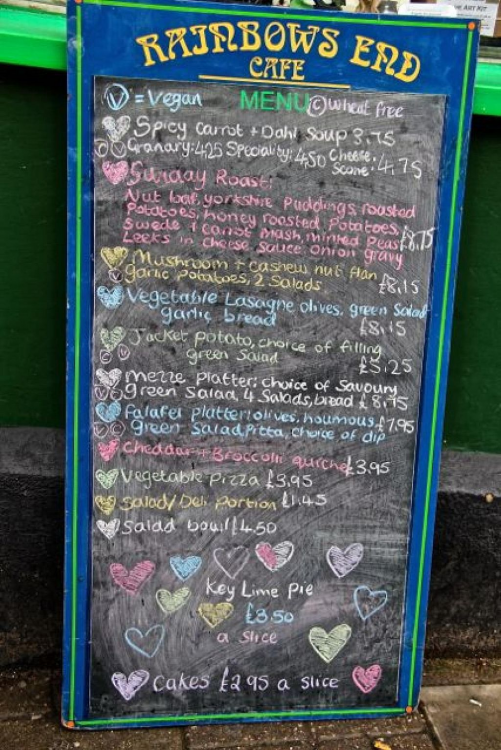 RAINBOWS END
CAFE
V = Vegan MENU C wheat free
Spicy Carrot + Dahl Soup 3.75
C V Granary: 4.25 Speciality: 4.50 Cheese Scone: 4.75
Sunday Roast:
Nut loaf, yorkshire Puddings, roasted
Potatoes, honey roasted Potatoes,
Swede + carrot mash, minted Peas
Leeks in cheese sauce onion gravy £8.75
Mushroom + cashew nut flan
V garlic potatoes, 2 Salads £8.15
Vegetable Lasagne olives, green Salad
garlic bread £8.15
Jacket potato, choice of filling
C V green Salad £5.25
Mezze Platter: choice of Savoury
V C green Salad, 4 Salads, bread £8.75
Falafel platter: olives, houmous, £7.95
V C Green Salad, Pitta, choice of dip
Cheddar + Broccoli quiche £3.95
Vegetable pizza £3.95
Salad/Deli Portion £1.45
Salad bowl £4.50
Key Lime Pie
£3.50
a slice
Cakes £2.95 a slice